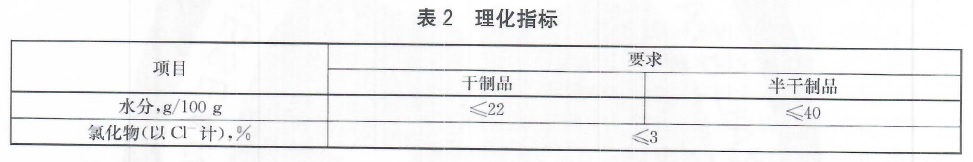 表 2 理化指标
项目 要求
干制品 半干制品
水分,g/100 g ≤22 ≤40
氯化物(以 Cl⁻ 计),% ≤3